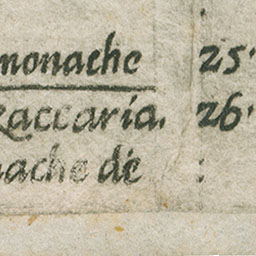 monache 25.
Zaccaria. 26.
nache dè :